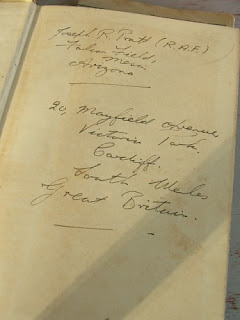 Joseph R. Pratt (R.A.F.)
Falcon Field,
Mesa
Arizona
20, Mayfield Avenue
Victoria Park.
Cardiff.
South Wales
Great Britain.